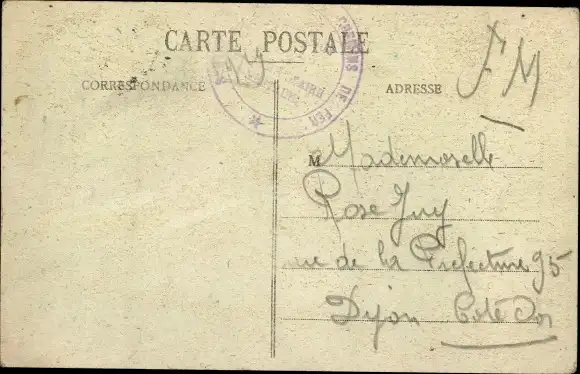 CARTE POSTALE
CHEMINS DE FER
CORRESPONDANCE
ADRESSE
FM
M Mademoiselle
Rose Guy
rue de la Préfecture 95
Dijon Côte d'Or